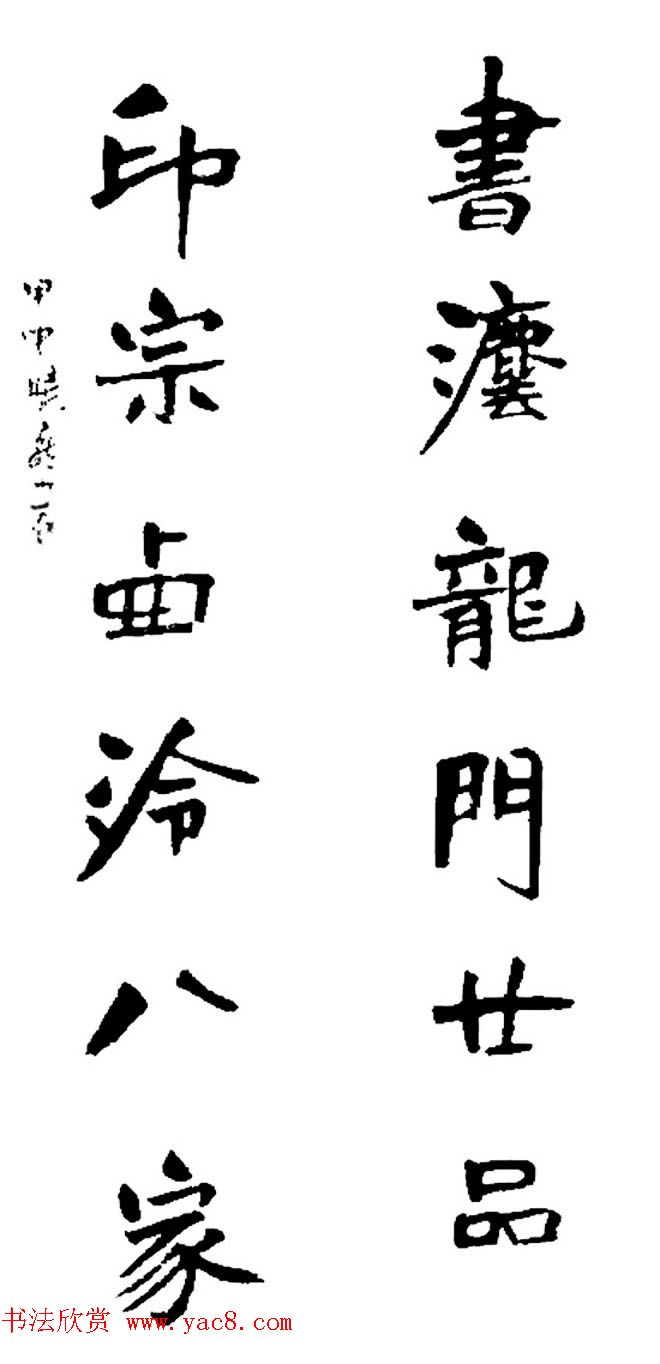 書灋龍門廿品
印宗卥泠八家
甲申
书法欣赏 www.yac8.com